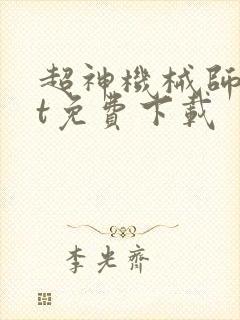 超神機械師
t免費下載
李光齊